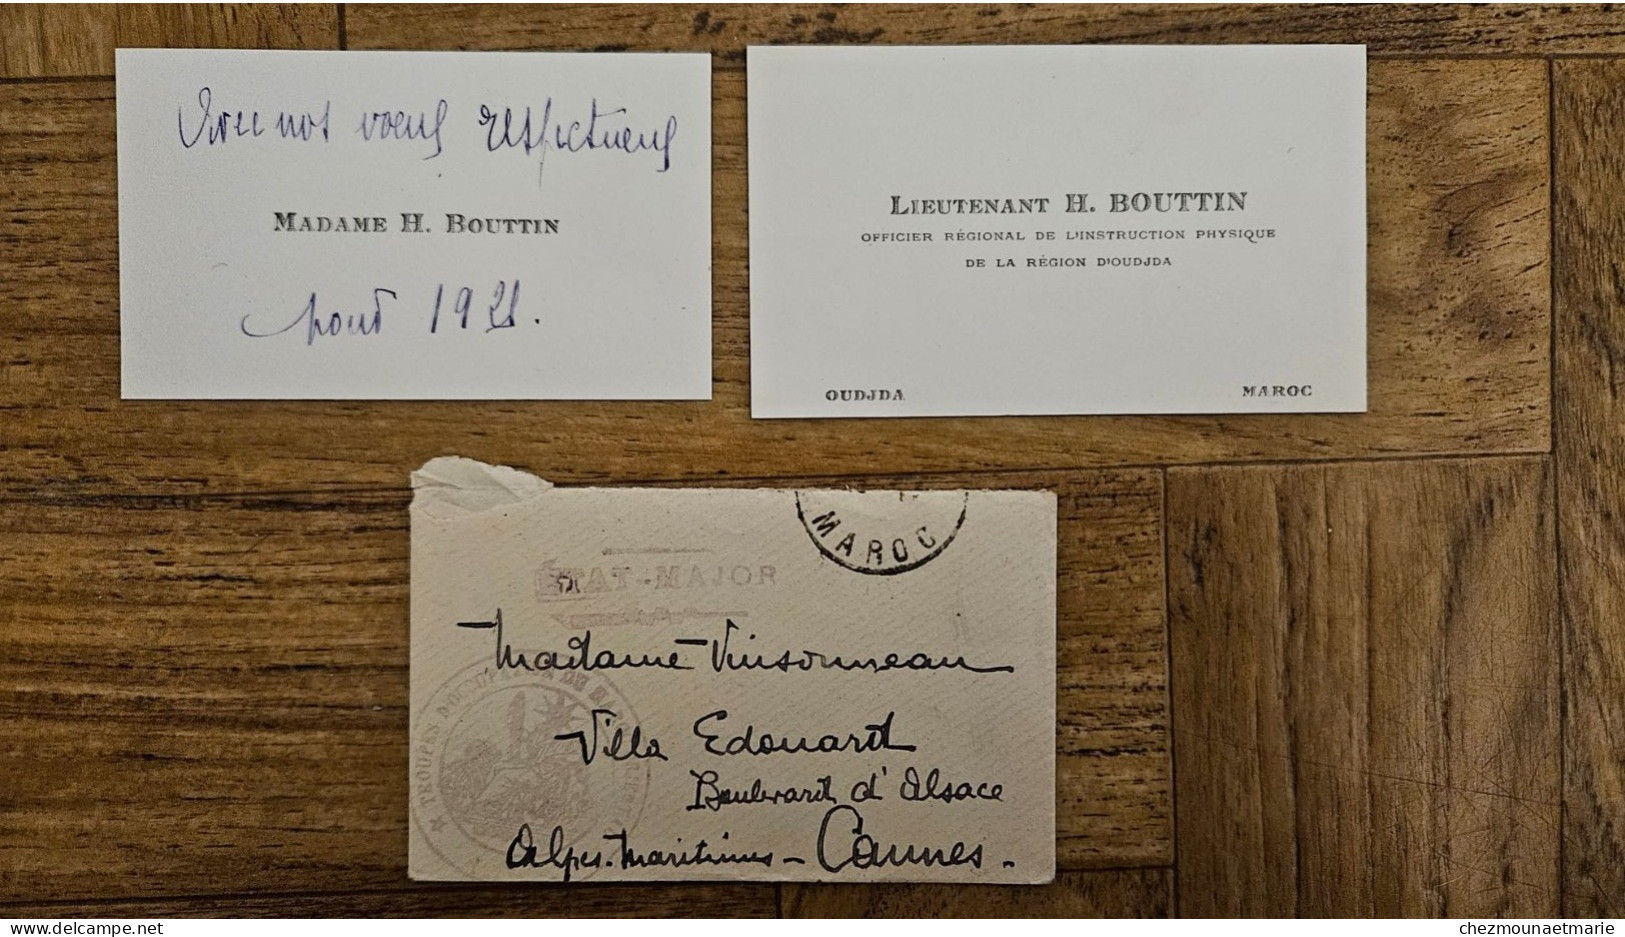 Avec nos voeux respectueux
MADAME H. BOUTTIN
pour 1921.
LIEUTENANT H. BOUTTIN
OFFICIER RÉGIONAL DE L'INSTRUCTION PHYSIQUE
DE LA RÉGION D'OUDJDA
OUDJDA
MAROC
MAROC
ÉTAT-MAJOR
TROUPES D'OCCUPATION DU MAROC
Madame Vinsonneau
Villa Edouard
Boulevard d'Alsace
Alpes-Maritimes - Cannes.
chezmounaetmarie